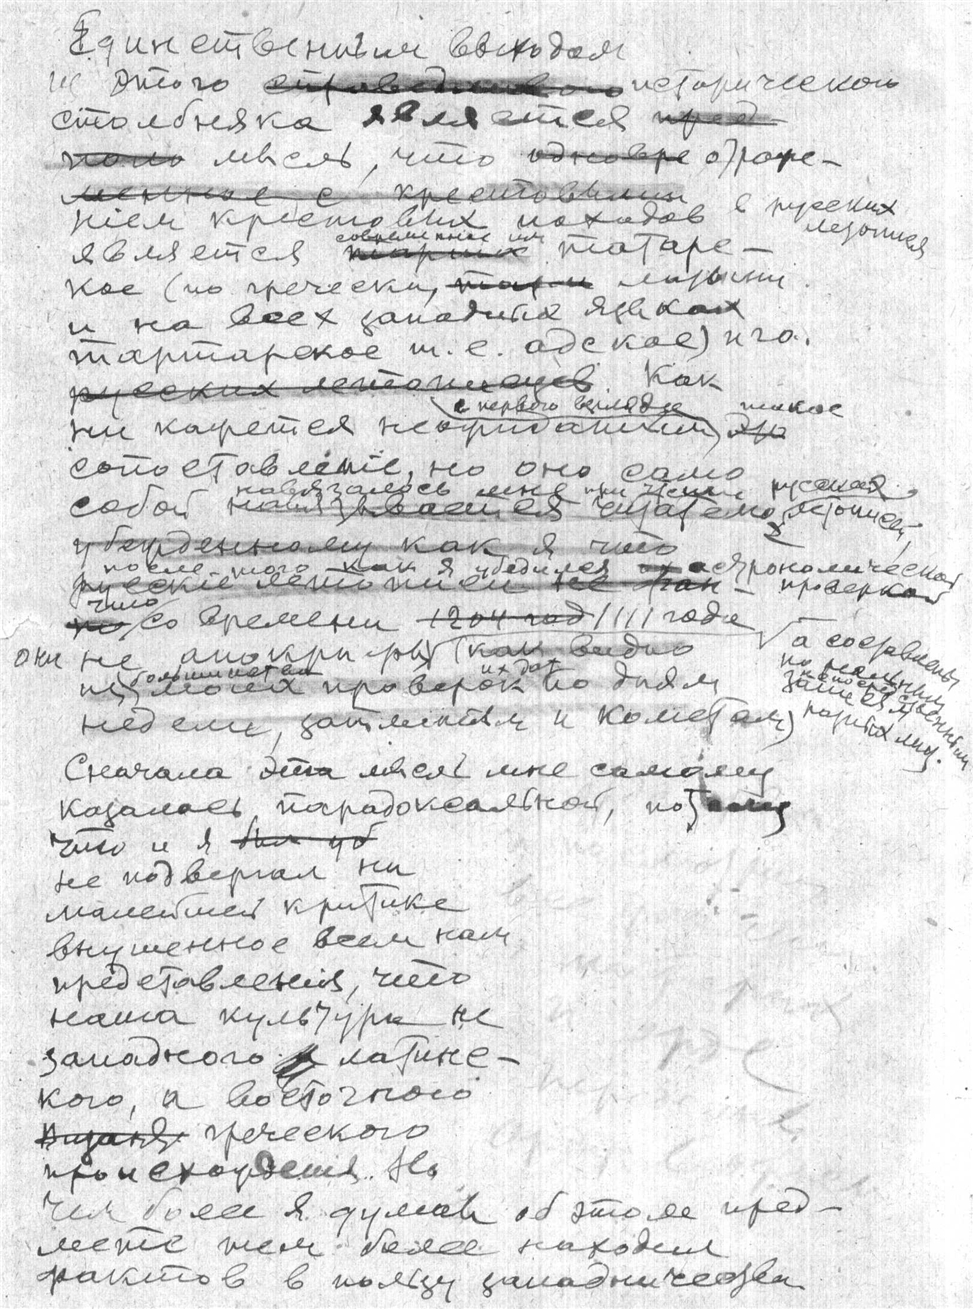 Единственным выходом
из этого исторического
столбняка является пред-
поло мысль, что одновре отраже-
менное с крестовыми
нием крестовых походов в русских летописях
является современное им татарс-
кое (по гречески, и на всех западных языках
тартарское т. е. адское) иго.
русских летописцев. Как
ни кажется неожиданным с первого взгляда такое
сопоставление, но оно само
собой навязалось мне при чтении русских летописей,
убежденному как я что
после того как я убедился астрономической проверкой
что со времени 1204 год 1111 года
они не апокрифы (как видно
из большинства моих проверок их дат по дням
недели, затмениям и кометам)
а составлены по записям
Сначала эта мысль мне самому
казалась парадоксальной, потому
что и я
не подвергал ни
малейшей критике
внушенное всем нам
представления, что
наша культура не
западного латинс-
кого, а восточного
греческого
происхождения. Но
чем более я думал об этом пред-
мете тем более находил
фактов в пользу западнического